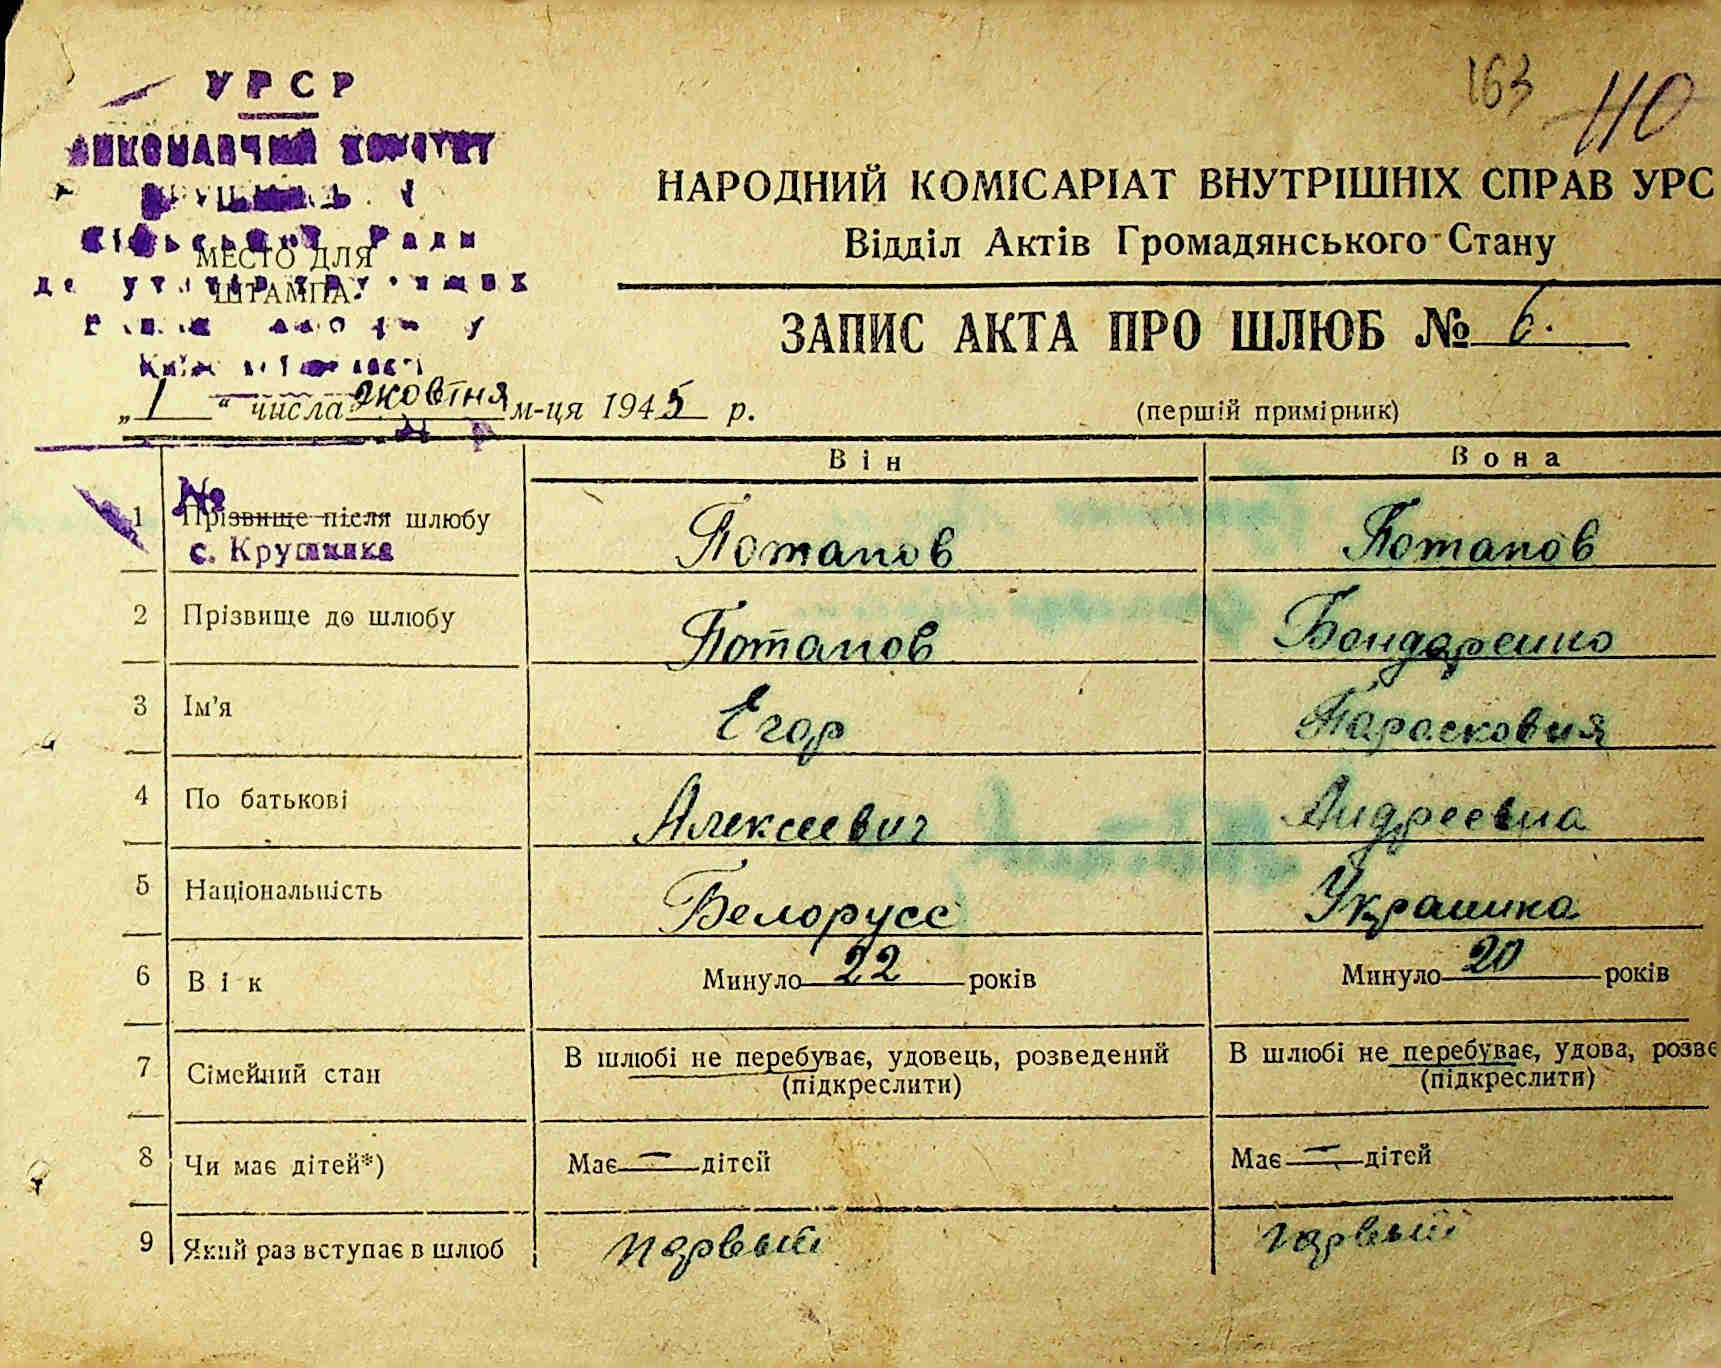 163
110
УРСР
НАРОДНИЙ КОМІСАРІАТ ВНУТРІШНІХ СПРАВ УРС
Відділ Актів Громадянського Стану
МЕСТО ДЛЯ
ШТАМПА.
ЗАПИС АКТА ПРО ШЛЮБ № 6.
„ 1 " числа жовтня м-ця 1945 р.
(перший примірник)
Він Вона
№
1 Прізвище після шлюбу Потапов Потапов
с. Крушинка
2 Прізвище до шлюбу Потапов Бондаренко
3 Ім'я Егор Парасковия
4 По батькові Алексеевич Андреевна
5 Національність Белорусс Украинка
6 Вік Минуло 22 років Минуло 20 років
7 Сімейний стан В шлюбі не перебуває, удовець, розведений В шлюбі не перебуває, удова, розве
(підкреслити) (підкреслити)
8 Чи має дітей*) Має — дітей Має — дітей
9 Який раз вступає в шлюб первый первый